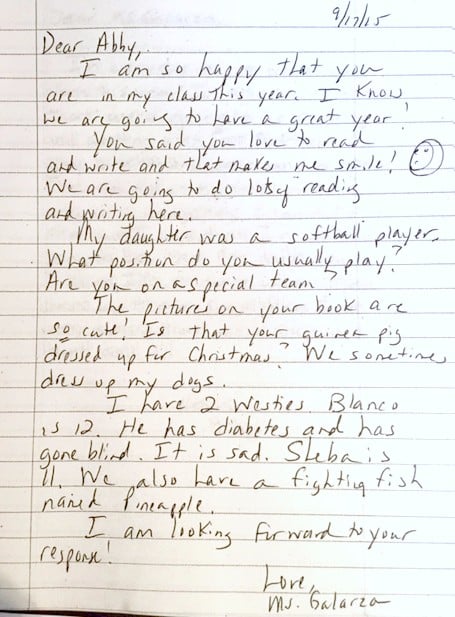 9/17/15
Dear Abby,
I am so happy that you
are in my class this year. I know
we are going to have a great year!
You said you love to read
and write and that makes me smile!
We are going to do lots of reading
and writing here.
My daughter was a softball player.
What position do you usually play?
Are you on a special team?
The pictures on your book are
so cute! Is that your guinea pig
dressed up for Christmas? We sometimes
dress up my dogs.
I have 2 Westies. Blanco
is 12. He has diabetes and has
gone blind. It is sad. Sheba is
11. We also have a fighting fish
named Pineapple.
I am looking forward to your
response!
Love,
Ms. Galarza